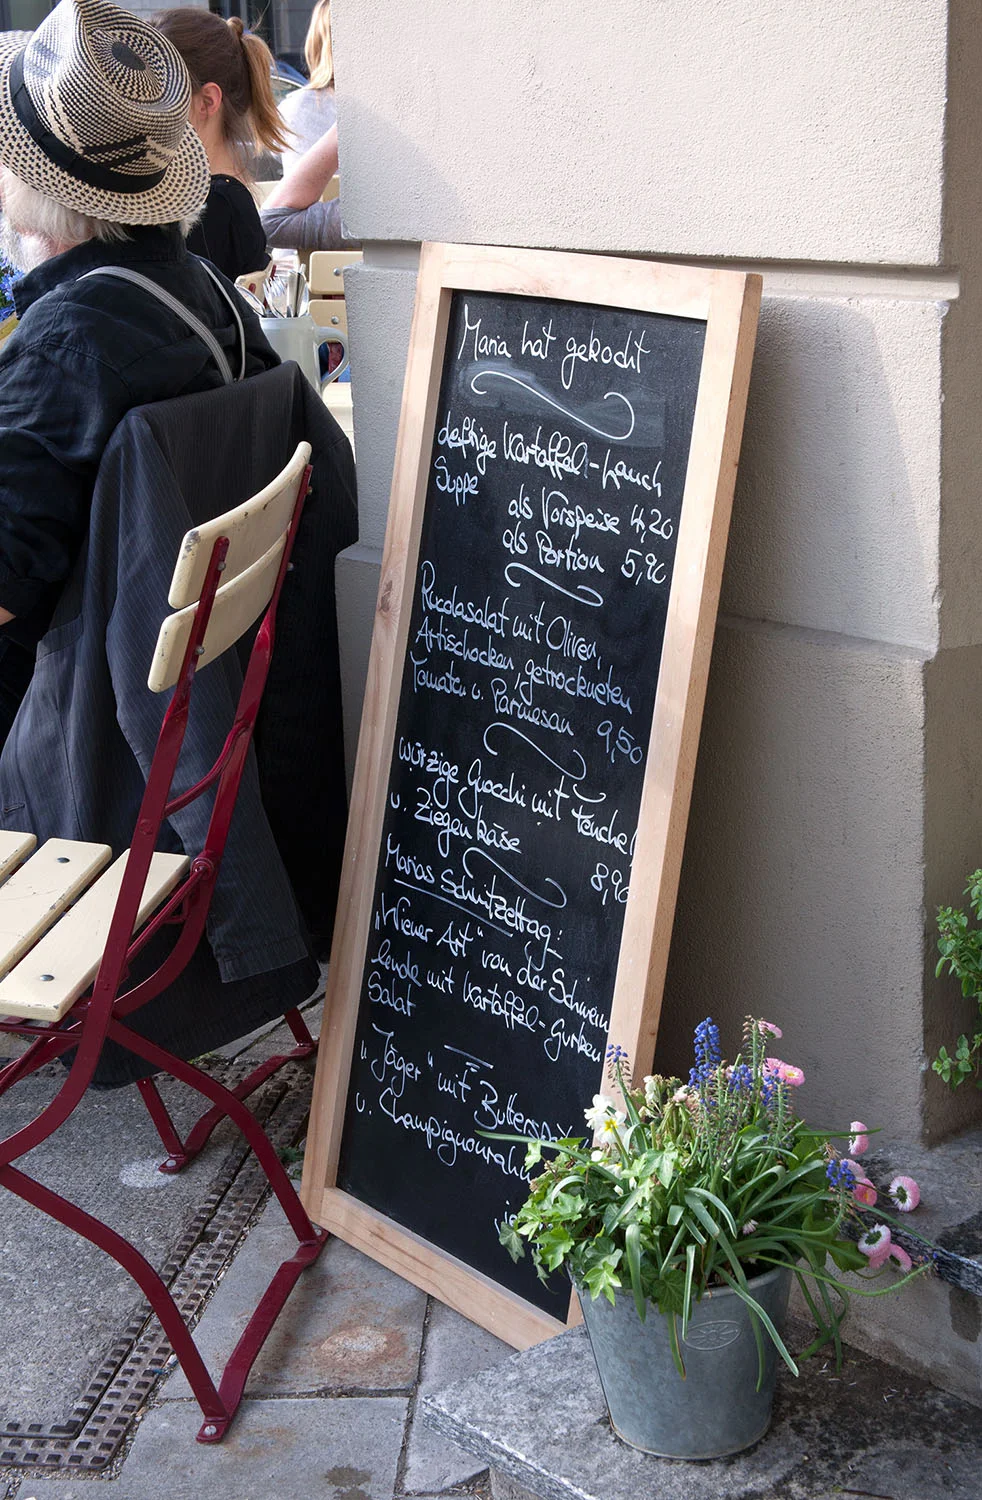 Maria hat gekocht
deftige Kartoffel-Lauch
Suppe
als Vorspeise 4,20
als Portion 5,90
Rucolasalat mit Oliven,
Artischocken, getrockneten
Tomaten u. Parmesan 9,50
würzige Gnocchi mit Fenchel
u. Ziegenkäse 8,90
Marias Schnitzeltag:
"Wiener Art" von der Schweine
lende mit Kartoffel-Gurken
Salat
"Jäger" mit
u. Champignonrahm